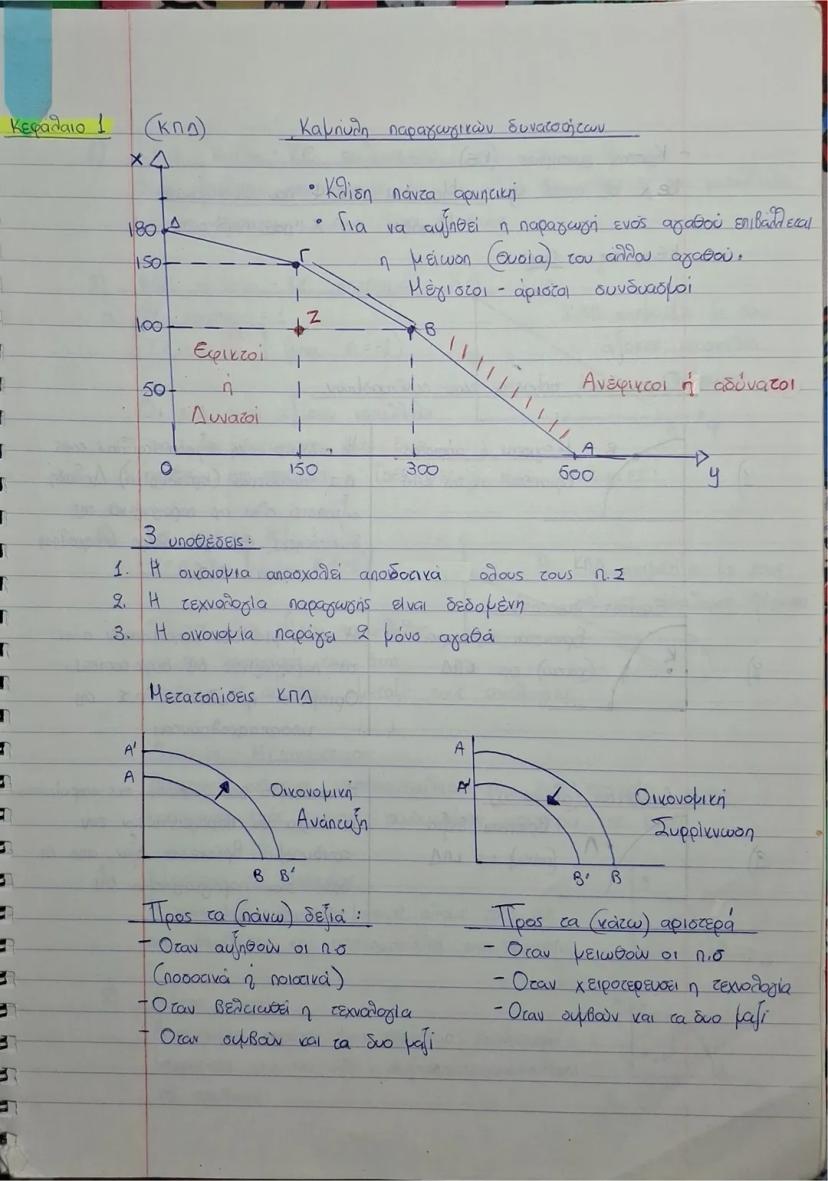 Κεφάλαιο 1 (ΚΠΔ) Καμπύλη παραγωγικών δυνατοτήτων
x
• Κλίση πάντα αρνητική
180 Δ • Για να αυξηθεί η παραγωγή ενός αγαθού επιβάλλεται
150 Γ η μείωση (θυσία) του άλλου αγαθού.
Μέγιστοι - άριστοι συνδυασμοί
100 Z B
Εφικτοί
ή
Δυνατοί
Ανέφικτοι ή αδύνατοι
50
A
0 150 300 600 y
3 υποθέσεις:
1. Η οικονομια απασχολεί αποδοτικά ολους τους π.Σ
2. Η τεχνολογία παραγωγής είναι δεδομένη
3. Η οικονομία παράγει 2 μόνο αγαθά
Μετατοπίσεις ΚΠΔ
A' A
A A'
Οικονομική
Ανάπτυξη
Οικονομική
Συρρίκνωση
B B' B' B
Προς τα (πάνω) δεξιά:
- Οταν αυξηθούν οι π.σ
(ποσοτικά ή ποιοτικά)
- Οταν βελτιωθεί η τεχνολογία
- Οταν συμβούν και τα δυο μαζί
Προς τα (κάτω) αριστερά
- Οταν μειωθούν οι π.σ
- Οταν χειροτερευσει η τεχνολογία
- Οταν συμβούν και τα δυο μαζί